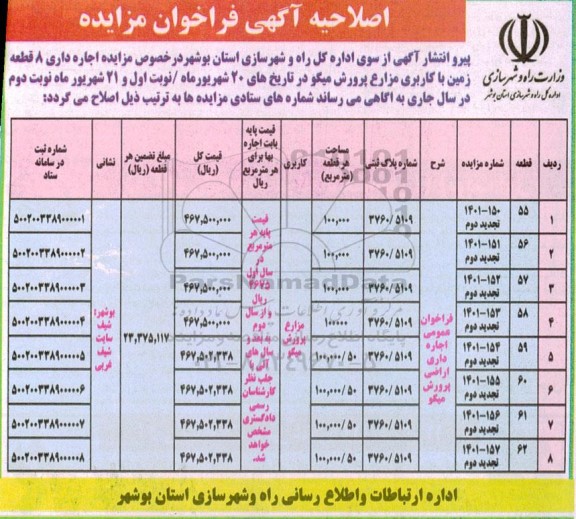 اصلاحیه آگهی فراخوان مزایده
وزارت راه و شهرسازی
اداره کل راه و شهرسازی استان بوشهر
پیرو انتشار آگهی از سوی اداره کل راه و شهرسازی استان بوشهر درخصوص مزایده اجاره داری ۸ قطعه
زمین با کاربری مزارع پرورش میگو در تاریخ های ۲۰ شهریورماه /نوبت اول و ۲۱ شهریور ماه نوبت دوم
در سال جاری به اگاهی می رساند شماره های ستادی مزایده ها به ترتیب ذیل اصلاح می گردد:
ردیف قطعه شماره مزایده شرح شماره پلاک ثبتی مساحت هر قطعه (مترمربع) کاربری قیمت پایه بابت اجاره بها برای هر مترمربع ریال قیمت کل (ریال) مبلغ تضمین هر قطعه (ریال) نشانی شماره ثبت در سامانه ستاد
۱ ۵۵ ۱۴۰۱-۱۵۰ تجدید دوم ۳۷۶۰/۵۱۰۹ ۱۰۰,۰۰۰ ۴۶۷,۵۰۰,۰۰۰ ۵۰۰۲۰۰۳۳۸۹۰۰۰۰۰۱
۲ ۵۶ ۱۴۰۱-۱۵۱ تجدید دوم ۳۷۶۰/۵۱۰۹ ۱۰۰,۰۰۰ ۴۶۷,۵۰۰,۰۰۰ ۵۰۰۲۰۰۳۳۸۹۰۰۰۰۰۲
۳ ۵۷ ۱۴۰۱-۱۵۲ تجدید دوم ۳۷۶۰/۵۱۰۹ ۱۰۰,۰۰۰ ۴۶۷,۵۰۰,۰۰۰ ۵۰۰۲۰۰۳۳۸۹۰۰۰۰۰۳
۴ ۵۸ ۱۴۰۱-۱۵۳ تجدید دوم ۳۷۶۰/۵۱۰۹ ۱۰۰۰۰۰ ۴۶۷,۵۰۰,۰۰۰ ۵۰۰۲۰۰۳۳۸۹۰۰۰۰۰۴
۵ ۵۹ ۱۴۰۱-۱۵۴ تجدید دوم ۳۷۶۰/۵۱۰۹ ۱۰۰,۰۰۰/۵۰ ۴۶۷,۵۰۲,۳۳۸ ۵۰۰۲۰۰۳۳۸۹۰۰۰۰۰۵
۶ ۶۰ ۱۴۰۱-۱۵۵ تجدید دوم ۳۷۶۰/۵۱۰۹ ۱۰۰,۰۰۰/۵۰ ۴۶۷,۵۰۲,۳۳۸ ۵۰۰۲۰۰۳۳۸۹۰۰۰۰۰۶
۷ ۶۱ ۱۴۰۱-۱۵۶ تجدید دوم ۳۷۶۰/۵۱۰۹ ۱۰۰,۰۰۰/۵۰ ۴۶۷,۵۰۲,۳۳۸ ۵۰۰۲۰۰۳۳۸۹۰۰۰۰۰۷
۸ ۶۲ ۱۴۰۱-۱۵۷ تجدید دوم ۳۷۶۰/۵۱۰۹ ۱۰۰,۰۰۰/۵۰ ۴۶۷,۵۰۲,۳۳۸ ۵۰۰۲۰۰۳۳۸۹۰۰۰۰۰۸
فراخوان
عمومی
اجاره
داری
اراضی
پرورش
میگو
مزارع
پرورش
میگو
قیمت
پایه هر
مترمربع
در
سال اول
۴۶۷۵
ریال
و از سال
دوم
به بعد در
سال های
آتی با
جلب نظر
کارشناسان
رسمی
دادگستری
مشخص
خواهد
شد.
۲۳,۳۷۵,۱۱۷
بوشهر:
شیف
سایت
شیف
غربی
ParsNamadData
اداره ارتباطات واطلاع رسانی راه وشهرسازی استان بوشهر